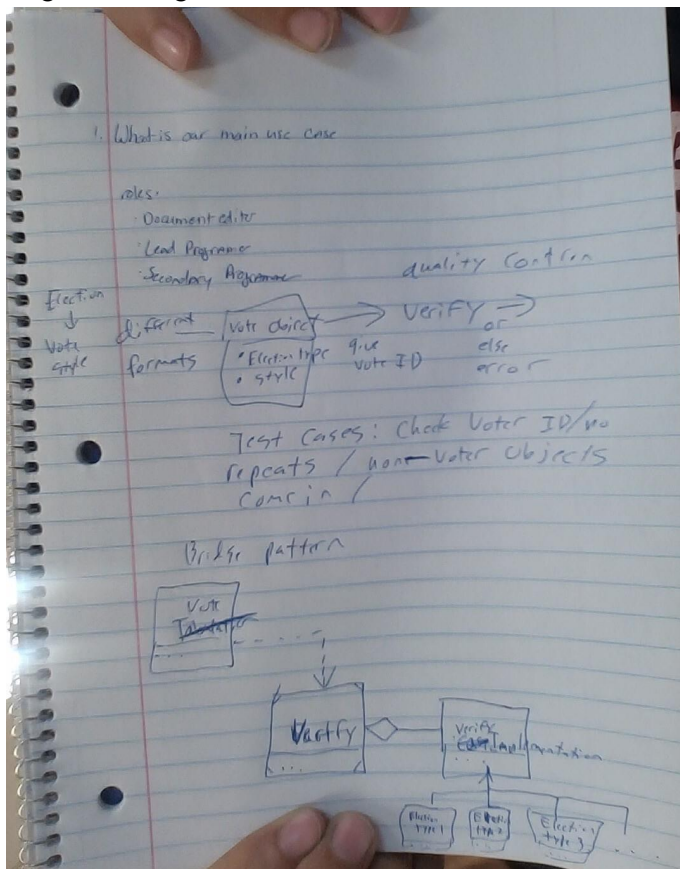 1. What is our main use case
roles:
· Document editor
· Lead Programer
· Secondary Programer
quality Control
Election
↓
Vote
style
different
formats
Vote object
• Election type
• style
give
vote ID
Verify
or
else
error
Test Cases: Check Voter ID/no
repeats / non-voter objects
come in /
Bridge pattern
Vote
....
Verify
....
Verify
Implementation
....
Election
type 1
Election
type 2
Election
type 3
....